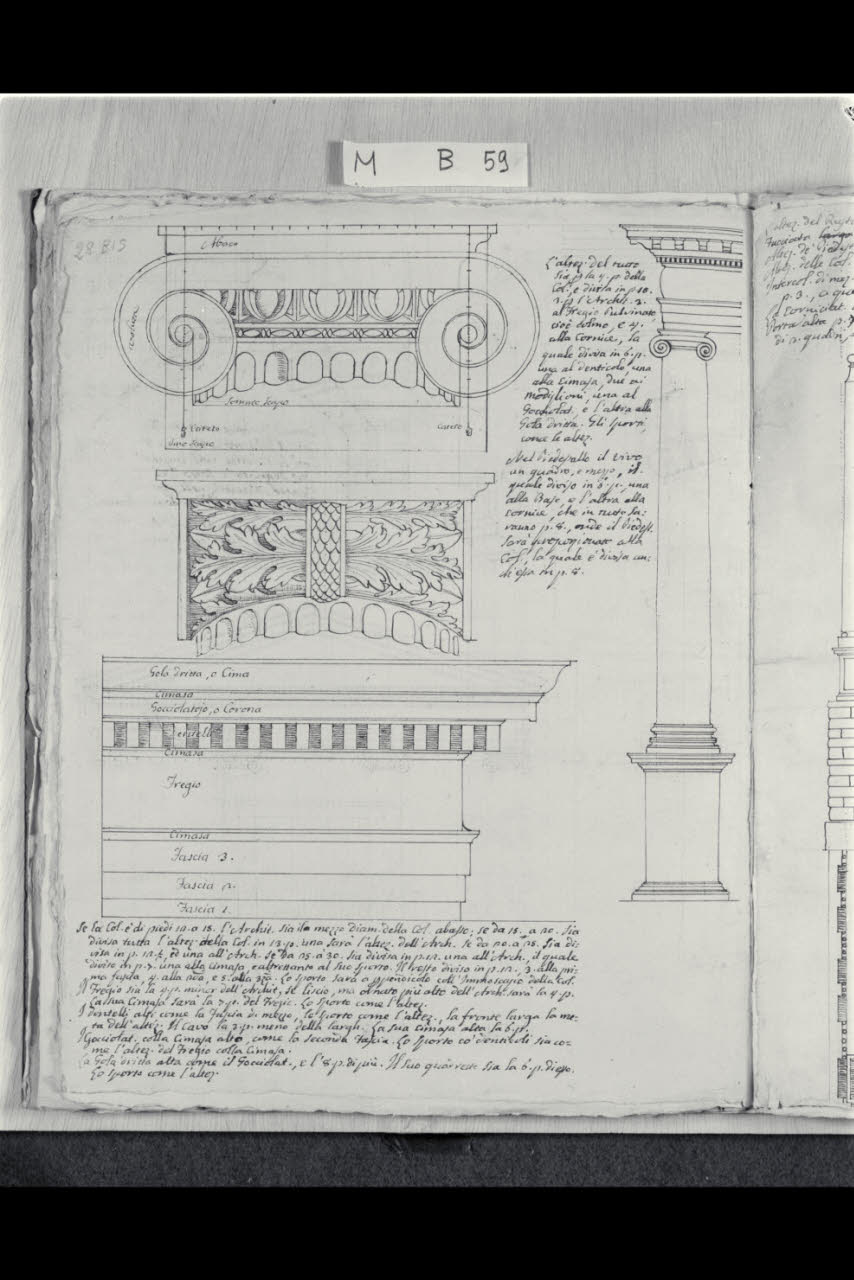 M B 59
28 BIS
Abaco
L'altez. del resto
sia p la 4. p. della
Col. e divisa in p. 10.
3. p. l'Archit. 3.
al Fregio Pulvinato
cioè colmo, e 4.
alla Cornice, la
quale divisa in 6. p.
una al denticolo, una
alla Cimasa, due ai
modiglioni, una al
Gocciolat., e l'altra alla
Gola dritta. Gli sporti,
come le altez.
Nel Piedestallo il vivo
un quadro, e mezzo, il
quale diviso in 6. p., una
alla Base, e l'altra alla
cornice, che in tutto sa-
ranno p. 8., onde il Piedest.
sarà proporzionato alla
Col., la quale è divisa an-
di essa in p. 8.
Cateto
Cateto
Gola dritta, o Cima
Cimasa
Gocciolatojo, o Corona
Dentelli
Cimasa
Fregio
Cimasa
Fascia 3.
Fascia 2.
Fascia 1.
Se la Col. è di piedi 12. a 15. l'Archit. sia il mezzo diam. della Col. abasso; se da 15. a 20. sia
divisa tutta l'altez. della Col. in 13. p. una sarà l'altez. dell'Arch. se da 20. a 25. sia di-
visa in p. 12 ½, ed una all'Arch. se da 25. a 30. sia divisa in p. 12. una all'Arch., il quale
diviso in p. 7. una alla Cimasa, ealtrettanto al suo sporto. Il resto diviso in p. 12., 3. alla pri-
ma fascia, 4. alla 2da, e 5. alla 3za. Lo sporto sarà a ppendicolo coll'Immoscapo della Col.
Il Fregio sia la 4. p. minor dell'Archit, se liscio, ma ornato più alto dell'Arch. sarà la 4. p.
La sua Cimasa sarà la 7. p. del Fregio. Lo sporto come l'altez.
I dentelli alti come la Fascia di mezzo, lo sporto come l'altez., la fronte larga la me-
tà dell'altez. Il Cavo la 3. p. meno della largh. La sua cimasa alta la 6. p.
Il Gocciolat. colla Cimasa alto, come la seconda Fascia. Lo Sporto co' denticoli sia co-
me l'altez. del Fregio colla Cimasa.
La Gola dritta alta come il Gocciolat., e l'8. p. di più. Il suo quadretto sia la 6. p. di essa.
Lo sporto come l'altez.